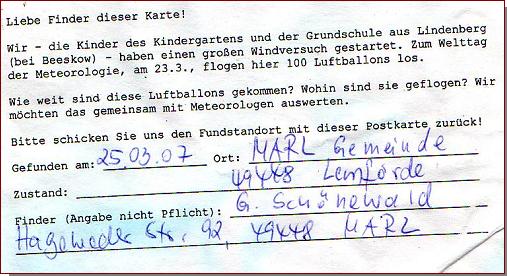 Liebe Finder dieser Karte!
Wir - die Kinder des Kindergartens und der Grundschule aus Lindenberg
(bei Beeskow) - haben einen großen Windversuch gestartet. Zum Welttag
der Meteorologie, am 23.3., flogen hier 100 Luftballons los.
Wie weit sind diese Luftballons gekommen? Wohin sind sie geflogen? Wir
möchten das gemeinsam mit Meteorologen auswerten.
Bitte schicken Sie uns den Fundstandort mit dieser Postkarte zurück!
Gefunden am: 25.03.07 Ort: MARL Gemeinde
Zustand: 49448 Lemförde
Finder (Angabe nicht Pflicht): G. Schönewald
Hageweder Str. 92, 49448 MARL